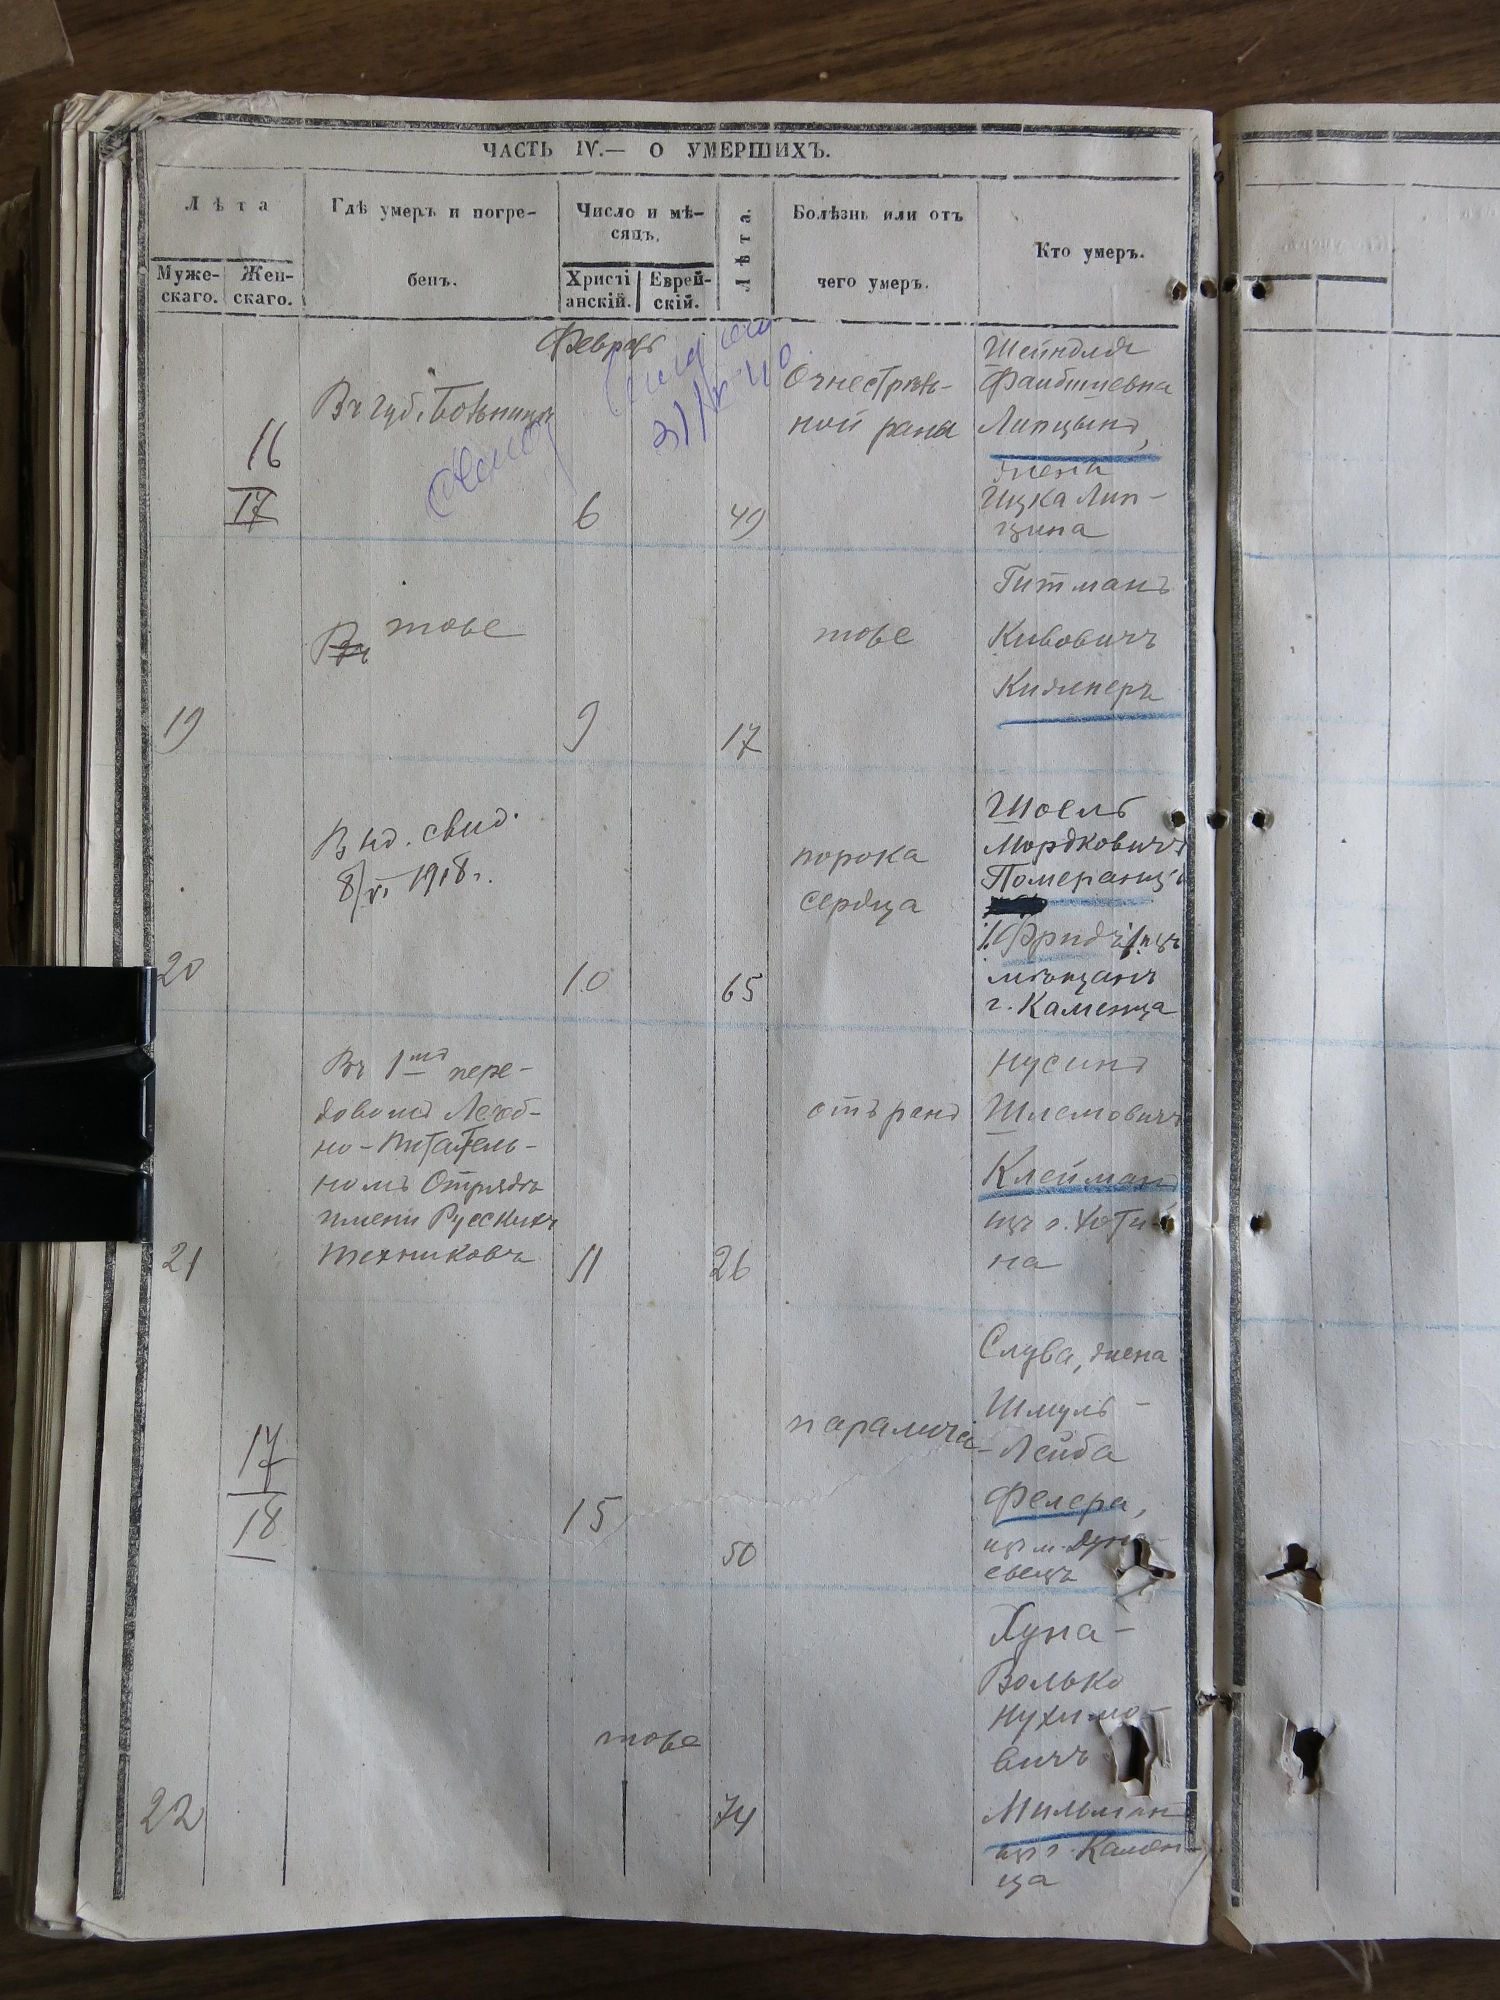 ЧАСТЬ IV.— О УМЕРШИХЪ.
Лѣта
Муже-
скаго.
Жен-
скаго.
Гдѣ умеръ и погре-
бенъ.
Число и мѣ-
сяцъ.
Христі
анскій.
Еврей-
скій.
Лѣта.
Болѣзнь или отъ
чего умеръ.
Кто умеръ.
16
17
Въ губ. Больницѣ
Февраль
6
31/
40
49
Огнестрѣль-
ной раны
Шейндля
Файбишевна
Липцынъ,
жена
Ицка Лип-
цина
19
Въ тоже
9
17
тоже
Гитманъ
Кивовичъ
20
Выд. свид.
8/VI 1918 г.
10
65
порока
сердца
Шоель
Мордковичъ
Померанцъ
мѣщанъ
г. Каменца
21
Въ 1мъ пере-
довомъ Лечеб-
но-Питатель-
номъ Отрядѣ
имени Русскихъ
техниковъ
11
26
отъ ранъ
Нусинъ
Шлемовичъ
Клейманъ
изъ г. Хоти-
на
17
18
15
50
паралича
Слува, жена
Шмуль-
-Лейба
Фелера,
изъ м. Дуна-
евецъ
22
тоже
74
Хуна-
Волько
Нухимо-
вичъ
Мильманъ
изъ г. Камен-
ца